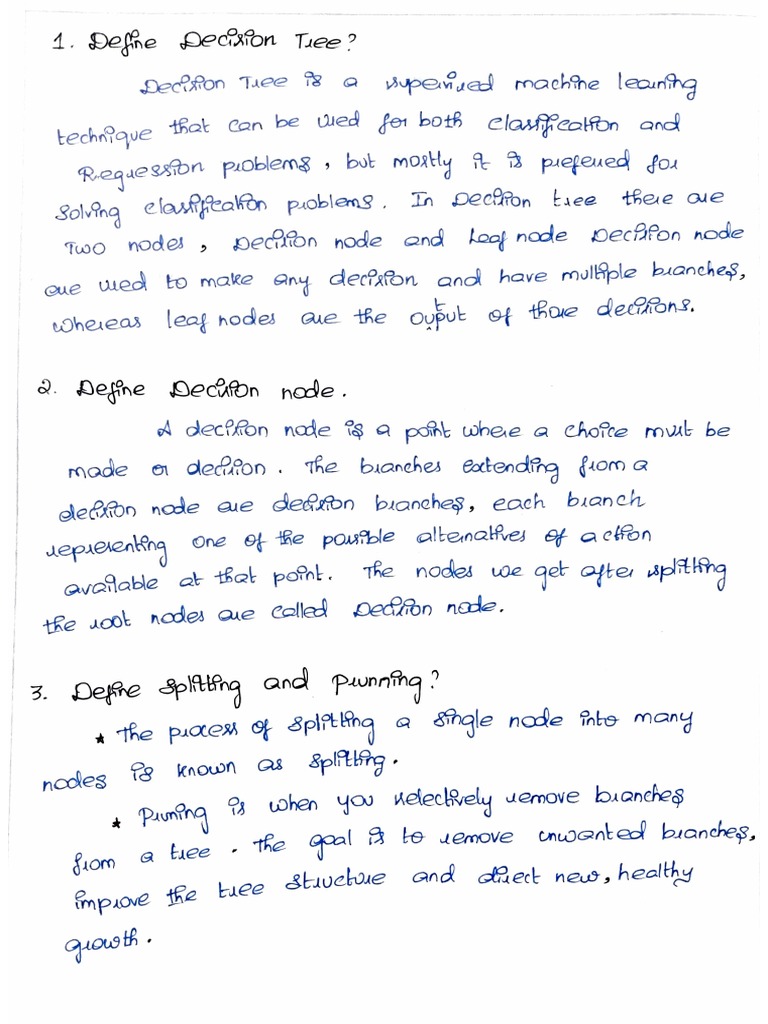 1. Define Decision Tree?
Decision Tree is a supervised machine learning
technique that can be used for both classification and
Regression problems, but mostly it is preferred for
Solving classification problems. In Decision tree there are
Two nodes, Decision node and Leaf node Decision node
are used to make any decision and have multiple branches,
whereas leaf nodes are the output of those decisions.
2. Define Decision node.
A decision node is a point where a choice must be
made or decision. The branches extending from a
decision node are decision branches, each branch
representing one of the possible alternatives of action
available at that point. The nodes we get after splitting
the root nodes are called Decision node.
3. Define Splitting and Prunning?
* The process of splitting a single node into many
nodes is known as splitting.
* Pruning is when you selectively remove branches
from a tree. The goal is to remove unwanted branches,
improve the tree structure and direct new, healthy
growth.